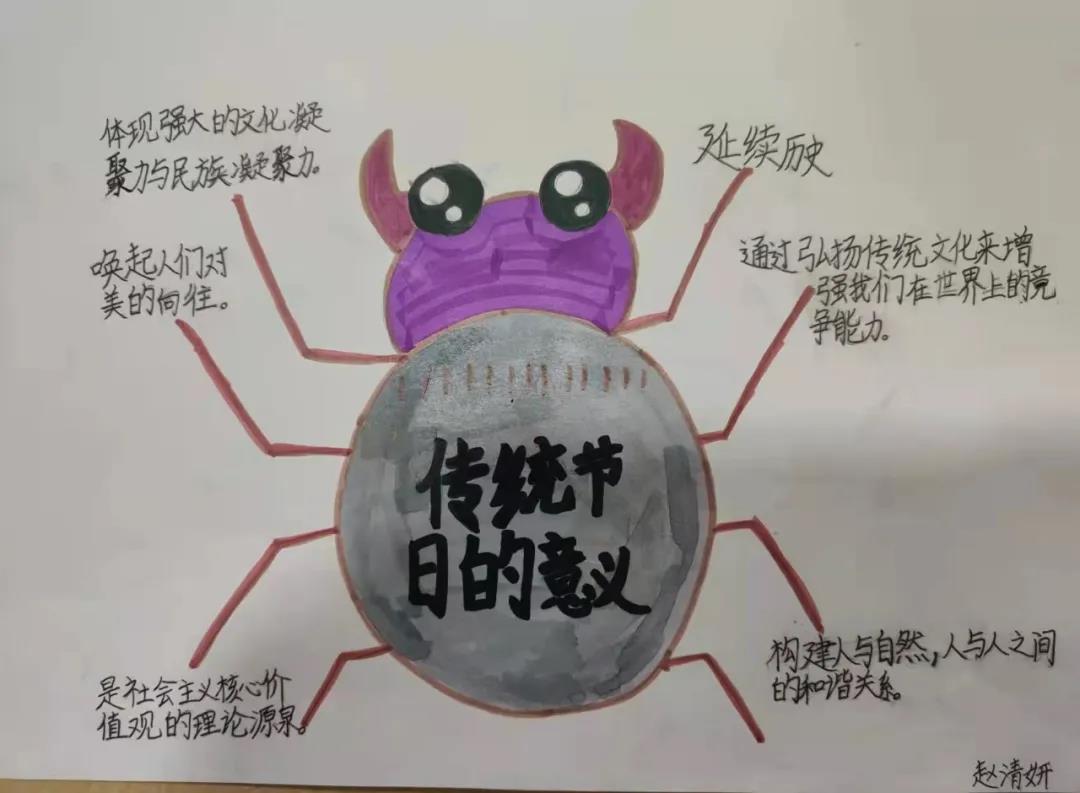 体现强大的文化凝
聚力与民族凝聚力。
唤起人们对
美的向往。
是社会主义核心价
值观的理论源泉。
传统节
日的意义
延续历史
通过弘扬传统文化来增
强我们在世界上的竞
争能力。
构建人与自然,人与人之间
的和谐关系。
赵清妍